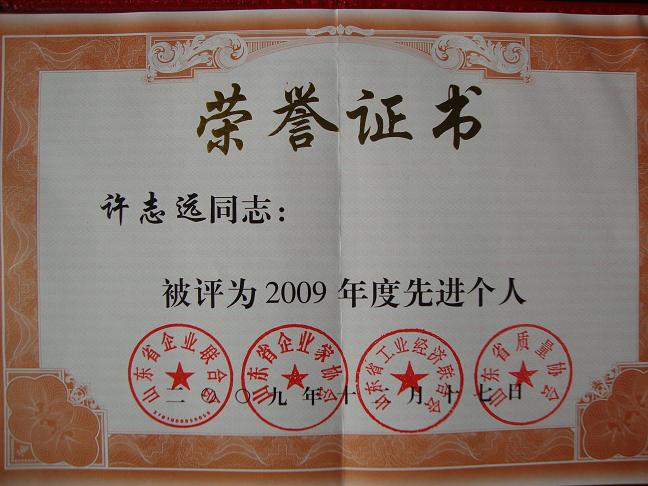 荣誉证书
许志远同志：
被评为2009年度先进个人
山东省企业联合会
山东省企业家协会
山东省工业经济联合会
山东省质量协会
二〇〇九年十月十七日